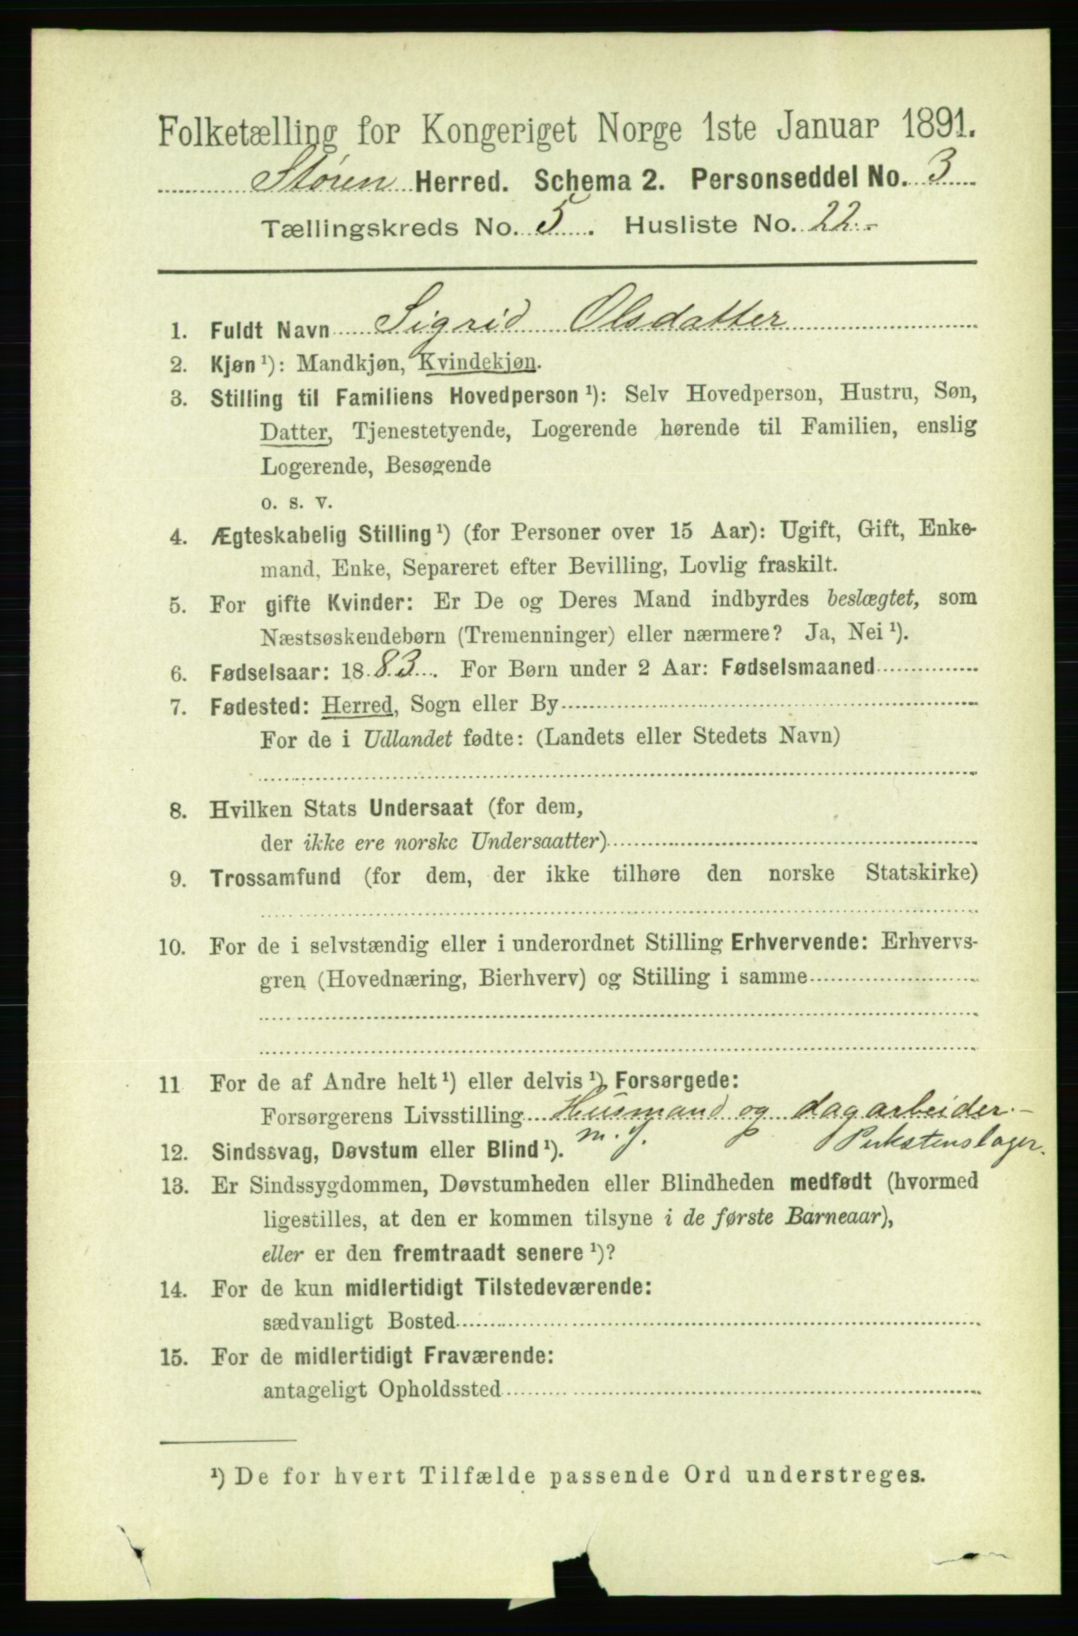 Folketælling for Kongeriget Norge 1ste Januar 1891.
Støren Herred. Schema 2. Personseddel No. 3
Tællingskreds No. 5. Husliste No. 22.-
1. Fuldt Navn Sigrid Olsdatter
2. Kjøn ¹): Mandkjøn, Kvindekjøn.
3. Stilling til Familiens Hovedperson ¹): Selv Hovedperson, Hustru, Søn,
Datter, Tjenestetyende, Logerende hørende til Familien, enslig
Logerende, Besøgende
o. s. v.
4. Ægteskabelig Stilling ¹) (for Personer over 15 Aar): Ugift, Gift, Enke-
mand, Enke, Separeret efter Bevilling, Lovlig fraskilt.
5. For gifte Kvinder: Er De og Deres Mand indbyrdes beslægtet, som
Næstsøskendebørn (Tremenninger) eller nærmere? Ja, Nei ¹).
6. Fødselsaar: 1883. For Børn under 2 Aar: Fødselsmaaned
7. Fødested: Herred, Sogn eller By
For de i Udlandet fødte: (Landets eller Stedets Navn)
8. Hvilken Stats Undersaat (for dem,
der ikke ere norske Undersaatter)
9. Trossamfund (for dem, der ikke tilhøre den norske Statskirke)
10. For de i selvstændig eller i underordnet Stilling Erhvervende: Erhvervs-
gren (Hovednæring, Bierhverv) og Stilling i samme
11 For de af Andre helt ¹) eller delvis ¹) Forsørgede:
Forsørgerens Livsstilling Husmand og dagarbeider.-
m. J.
12. Sindssvag, Døvstum eller Blind ¹).
13. Er Sindssygdommen, Døvstumheden eller Blindheden medfødt (hvormed
ligestilles, at den er kommen tilsyne i de første Barneaar),
eller er den fremtraadt senere ¹)?
14. For de kun midlertidigt Tilstedeværende:
sædvanligt Bosted
15. For de midlertidigt Fraværende:
antageligt Opholdssted
¹) De for hvert Tilfælde passende Ord understreges.